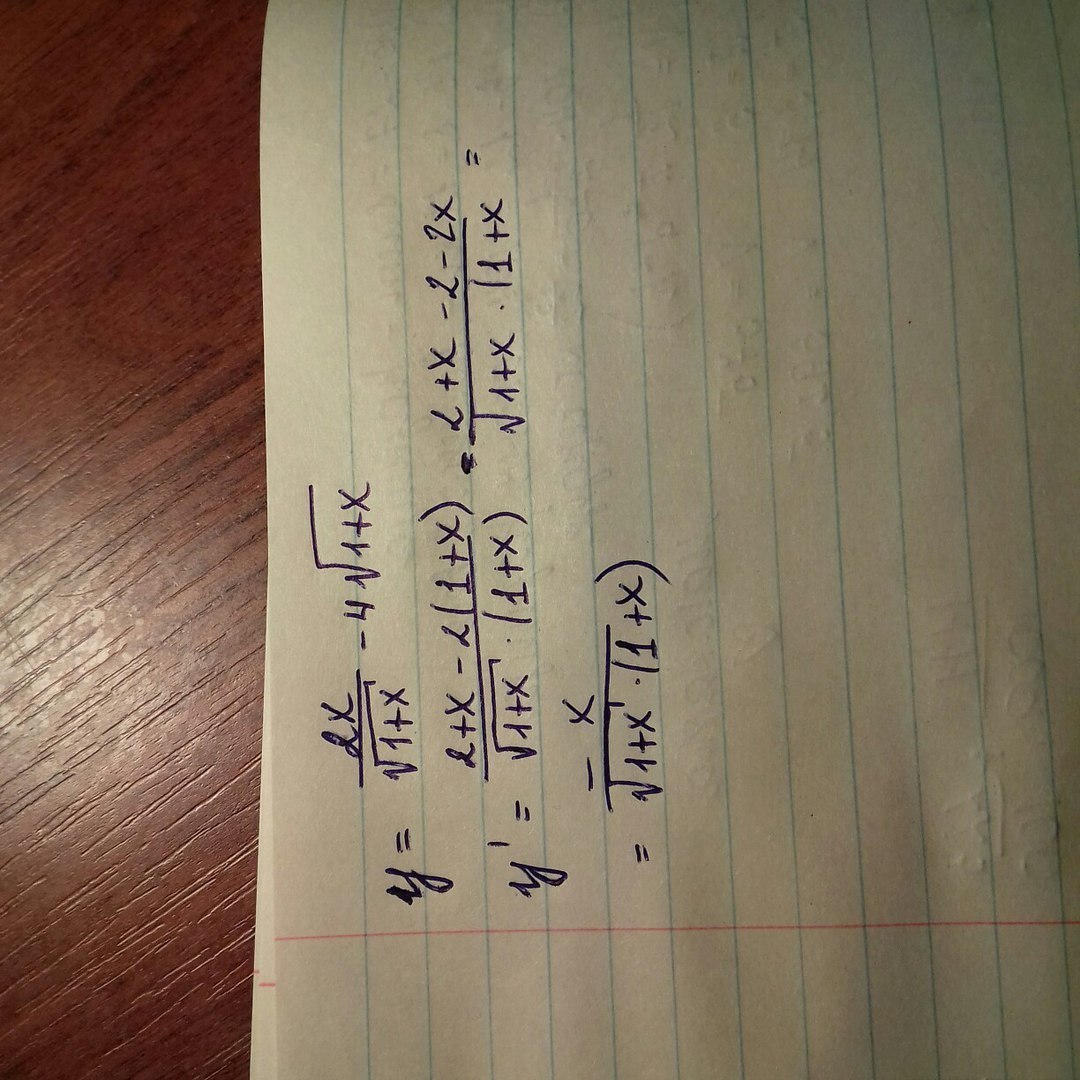 y = 2x/√(1+x) - 4√(1+x)
y' = (2+x-2(1+x))/(√(1+x)·(1+x)) = (2+x-2-2x)/(√1+x·(1+x =
= -x/(√(1+x)·(1+x))